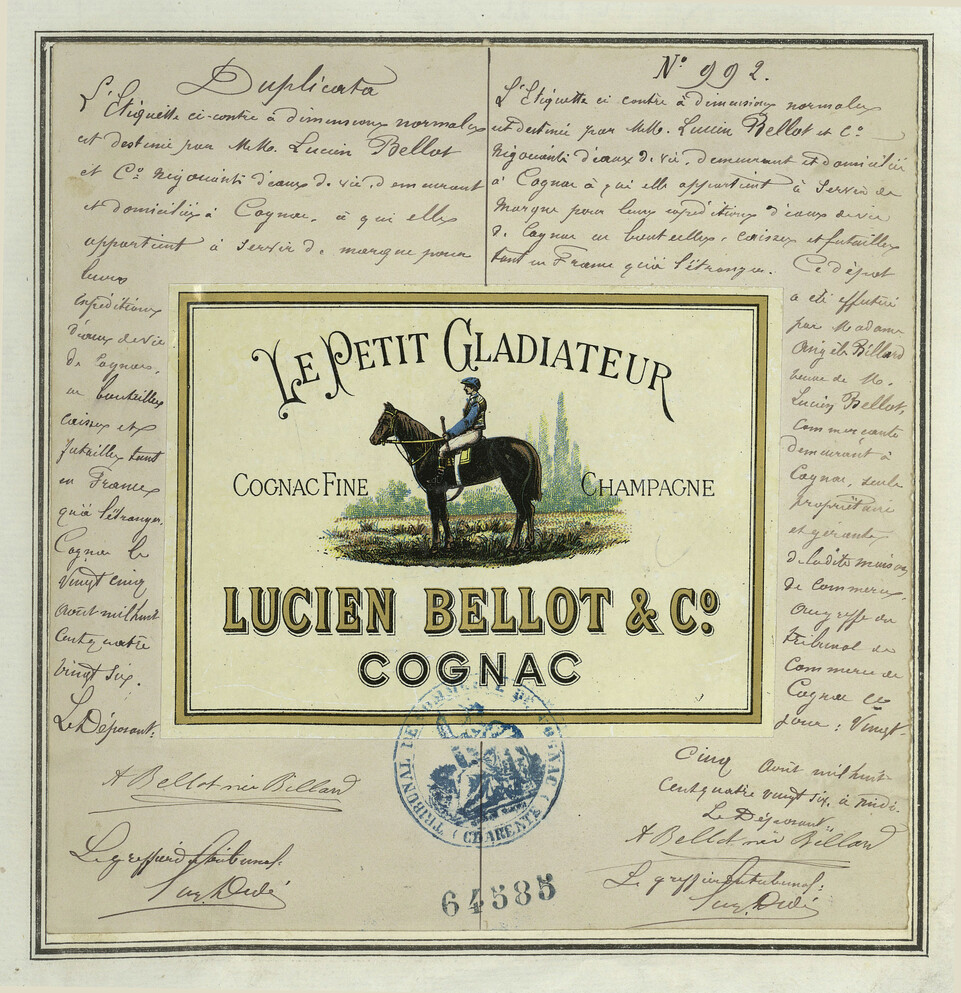 Duplicata
L'Etiquette ci-contre à dimensions normales
est destinée par M.M. Lucien Bellot
et Cº négociants d'eaux de vie, demeurant
et domiciliés à Cognac, à qui elle
appartient à servir de marque pour
leurs
expéditions
d'eaux de vie
de Cognac,
en bouteilles
caisses et
futailles tant
en France
qu'à l'étranger.
Cognac le
Vingt cinq
Août mil huit
cent quatre
vingt six.
Le Déposant:
A Bellot née Billard
Le greffier du tribunal:
Nº 992.
L'Etiquette ci contre à dimensions normales
est destinée par M.M. Lucien Bellot et Cº
négociants d'eaux de vie, demeurant et domiciliés
à Cognac à qui elle appartient à servir de
marque pour leurs expéditions d'eaux de vie
de Cognac en bouteilles, caisses et futailles
tant en France qu'à l'étranger. Ce dépôt
a été effectué
par Madame
Angèle Billard
veuve de M.
Lucien Bellot,
commerçante
demeurant à
Cognac, seule
propriétaire
et gérante
de ladite maison
de commerce
au greffe du
tribunal de
commerce de
Cognac ce
jour: Vingt-
cinq Août mil huit
cent quatre vingt six, à midi.
Le Déposant,
A Bellot née Billard
Le greffier du tribunal:
LE PETIT GLADIATEUR
COGNAC FINE CHAMPAGNE
LUCIEN BELLOT & Cº
COGNAC
TRIBUNAL DE COMMERCE DE COGNAC
(CHARENTE)
64585